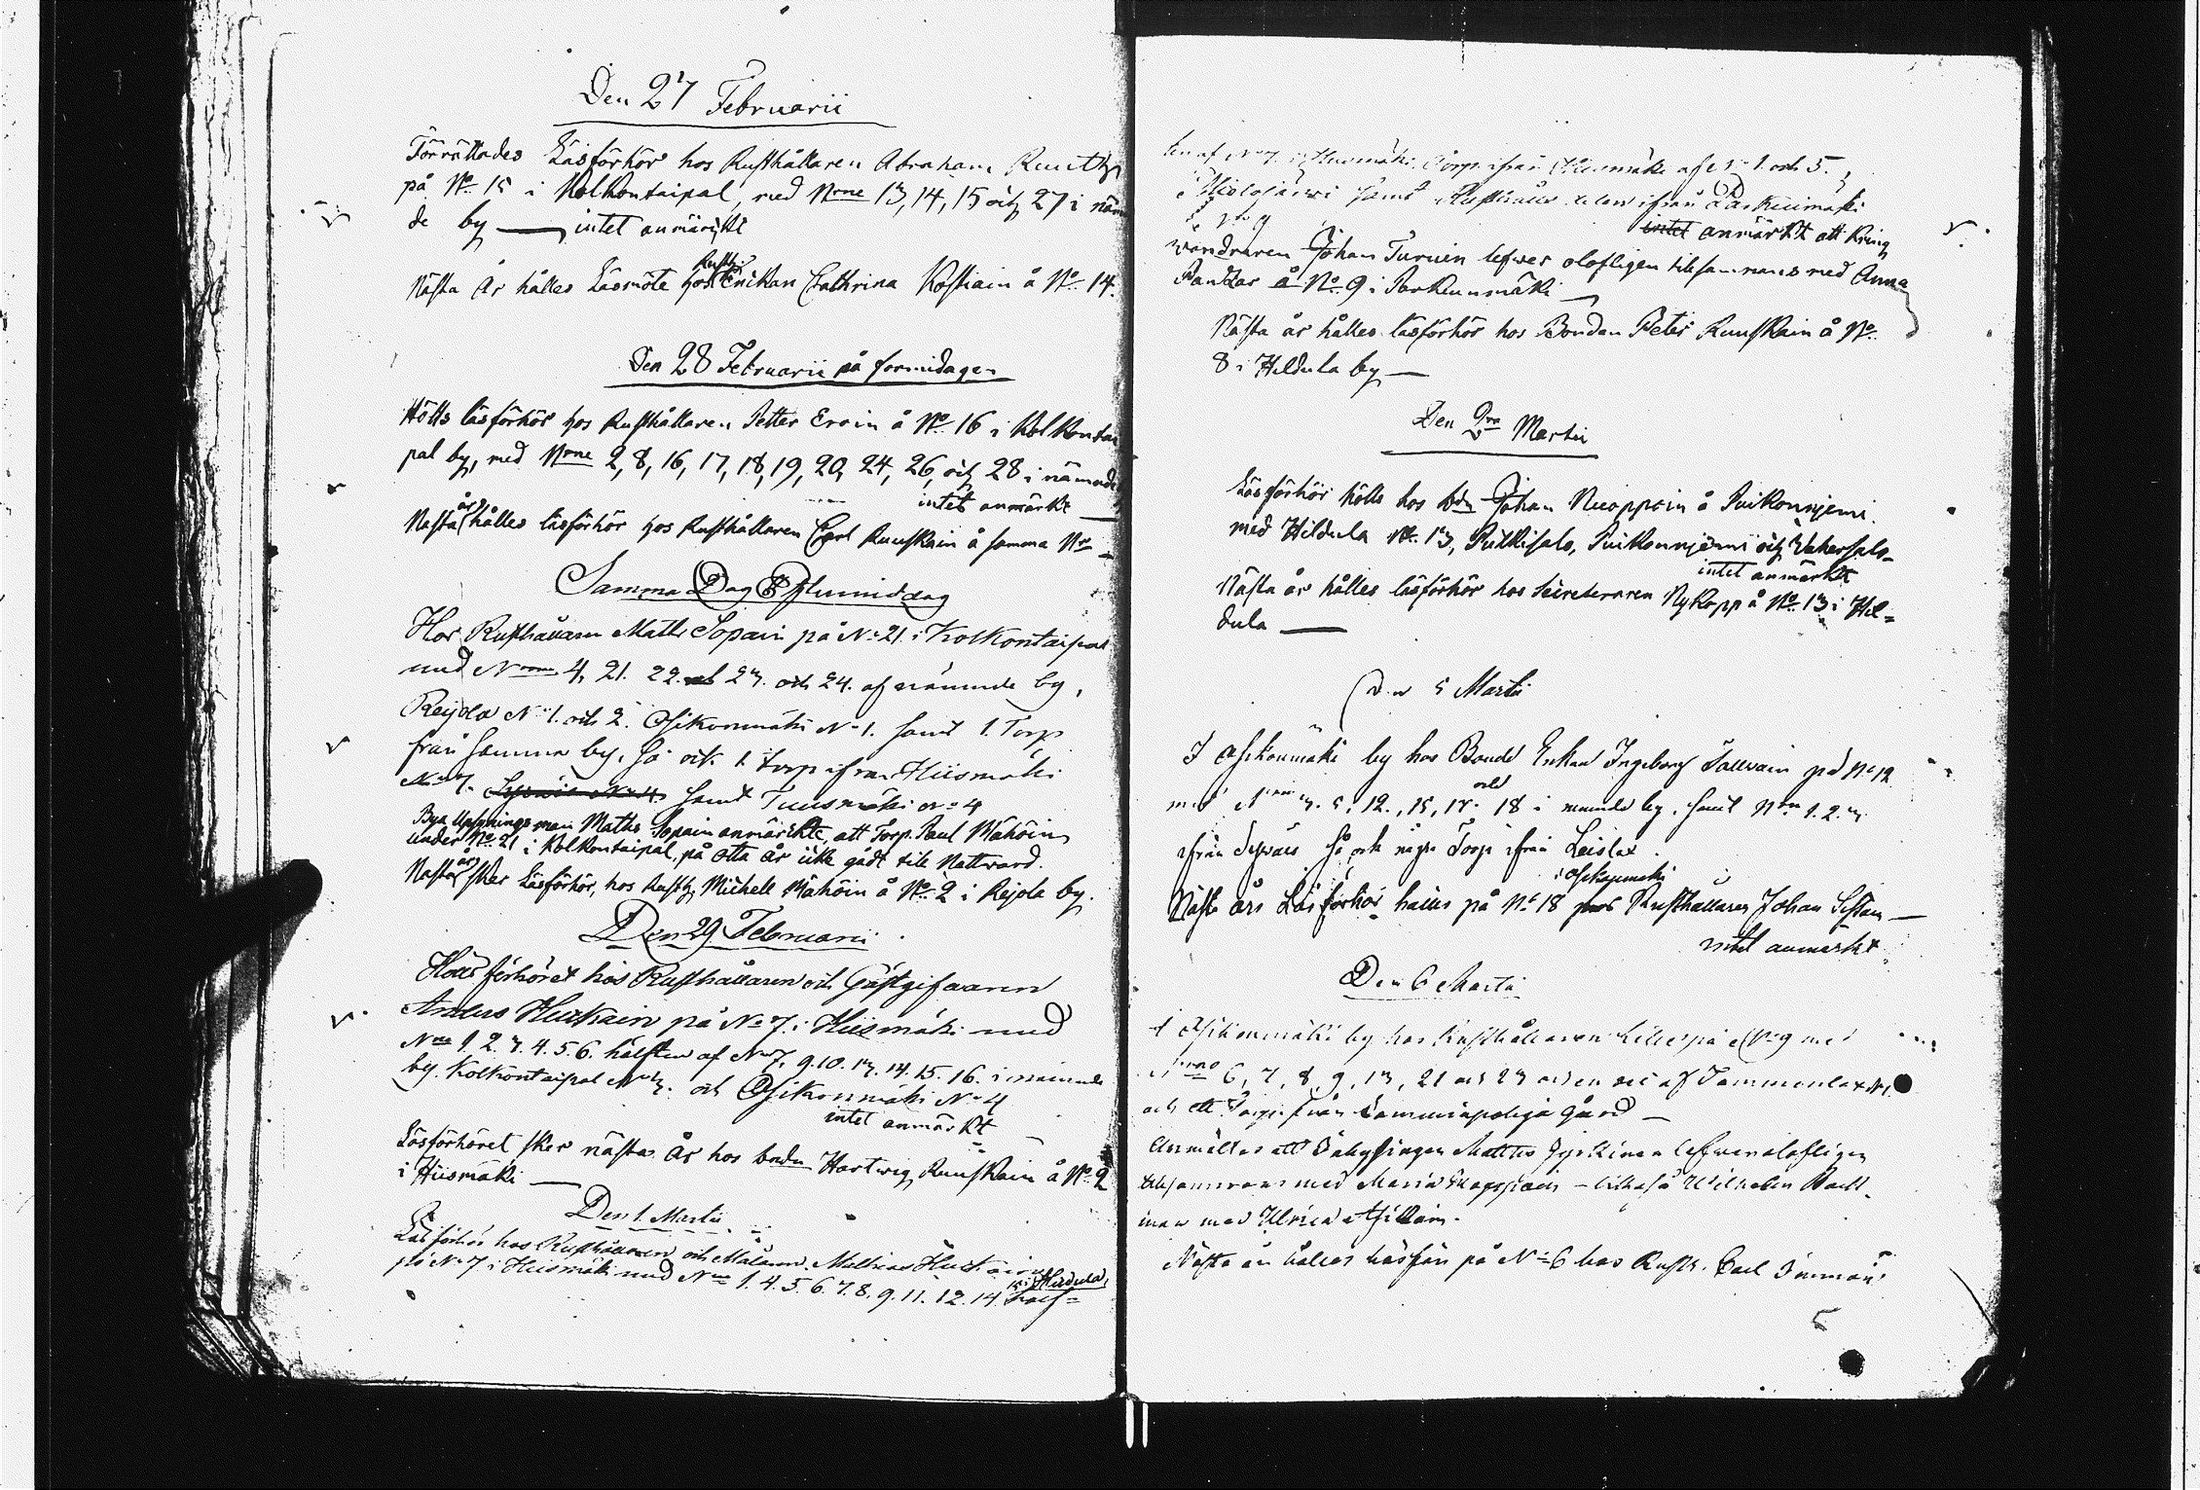 Den 27 Februarii
Förrättades Läsförhör hos Rusthållaren Abraham
på No 15 i Kolkontaipal, med Nrne 13, 14, 15 och 27 i näm
de by — intet anmärkt
Nästa År hålles Läsmöte hos Rusth: Enkan Cathrina Kostiain å No 14.
Den 28 Februarii på förmidagen
Hölts läsförhör hos Rusthållaren Petter Eroin å No 16 i Kolkontai
pal by, med Nrne 2, 8, 16, 17, 18, 19, 20, 24, 26, och 28 i nämnde
intet anmärkt —
Nästa år hålles läsförhör hos Rusthållaren Carl Kuuskain å samma No —
Samma Dag Eftermiddag
Hos Rusthållaren Matts Sopain på No 21 i Kolkontaipal
med Nrne 4, 21. 22. 23. och 24. af nämnde by,
Reijola No 1. och 2. Osikonmäki No 1. samt 1. Torp
från samma by, så ock 1 torp ifrån Hiismäki
No 7. samt Tuusmäki No 4
Bya Uppsynings man Matts Sopain anmärkte, att Torp. Paul Wähöin
under No 21 i Kolkontaipal, på otta år icke gådt till Nattward.
Nästa år sker Läsförhör, hos Rusth: Michell Wähöin å No 2 i Rejola by.
Den 29 Februarii
Hölts förhöret hos Rusthållaren och Gästgifwaren
Anders Huskain på No 7. i Hiismäki med
Nrne 1 2. 3. 4. 5. 6. hälften af No 7, 9. 10. 13. 14. 15. 16. i nämnde
by. Kolkontaipal No 3. och Osikonmäki No 4
intet anmärkt
Läsförhöret sker nästa År hos bonden Hartwig Kuuskain å No 2
i Hiismäki —
Den 1. Martii
Läsförhör hos Rusthållaren och Målaren Mathias Huskain
på No 7 i Hiismäki med Nrne 1. 4. 5. 6. 7. 8. 9. 11. 12. 14. 15 i Hildula, half=
ten af No 7. i Hiismäki. Torp ifrån Hiismäki af No 1. och 5.
samt Rusthållaren ifrån Parkuimäki
intet anmärkt att Kring
wandraren Johan Turuin lefwer olofligen tillsammans med Anna
Pantzar å No 9 i Parkuinmäki —
Nästa år hålles läsförhör hos Bonden Peter Kuuskain å No
8 i Hildula by —
Den 2dra Martii
Läsförhör hölts hos bdn Johan Nuoppoin å Puikonnjemi.
med Hildula No 13, Pulkkisalo, Puikonnjemi och Wahersalo
intet anmärkt
Nästa år hålles läsförhör hos Secreteraren Nykopp å No 13 i Hil=
dula —
Den 5 Martii
I Osikonmäki by hos Bonde Enkan Ingeborg på No 12
med Nrne 3. 5. 12., 15, 17. och 18 i nämnde by. samt Nrn 1. 2. 3
ifrån så ock några Torp ifrån Leislax.
i Osikonmäki
Nästa års Läsförhör hålles på No 18 hos Rusthållaren Johan —
intet anmärkt.
Den 6 Martii
I Osikonmäki by hos Rusthållaren på No 9 med
Nrne 6, 7, 8, 9, 13, 21 och 23 och en del af Tammenlax No 1
och ett Torp från gård —
Anmältes att Inhysingen Matts lefwer olofligen
tillsammans med Maria — likaså Wilhelm
man med Ulrica
Nästa år hålles läsför på No 6 hos Rusth. Carl Immon